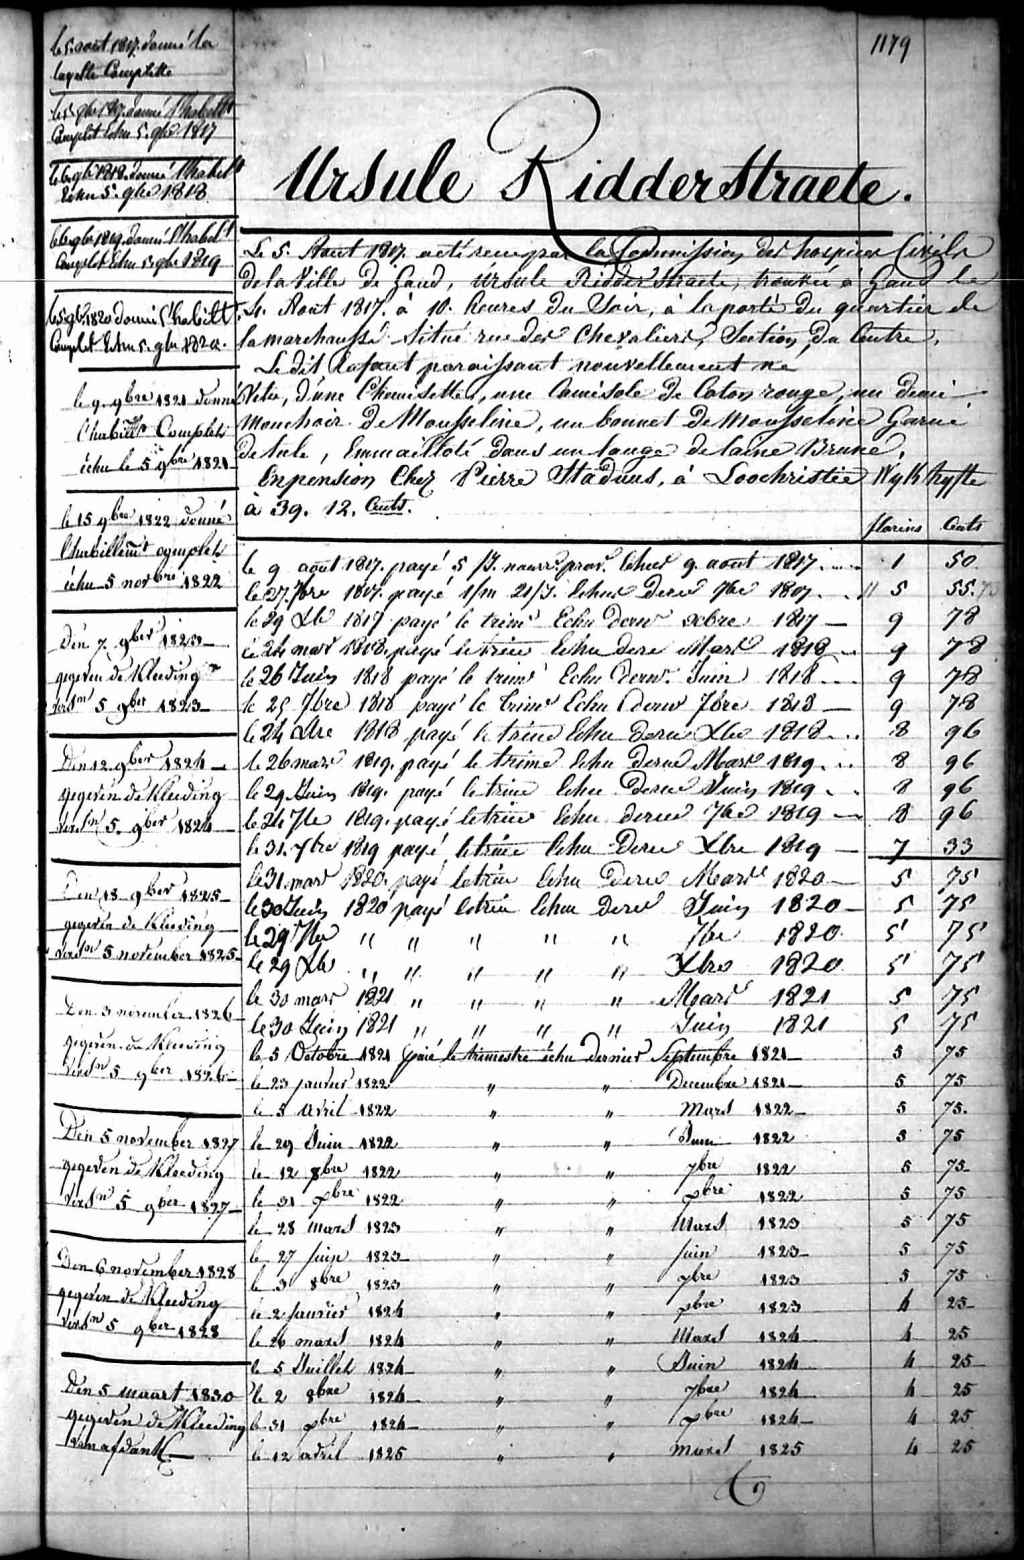 1179
Ursule Ridderstraete.
le 5 aout 1817 donné la
layette Complette
le 5 9bre 1817 donné l'habill.t
Complet Echu 5. 9bre 1817
le 6 9bre 1818 donné l'habill.t
Echu 5. 9bre 1818
le 6 9bre 1819 donné l'habil.t
Complet Echu 5. 9bre 1819
le 5 9bre 1820 donné l'habillt
Complet Echu 5. 9bre 1820.
le 9. 9bre 1821 donné
l'habillt Complets
échu le 5 9bre 1821
le 15 9bre 1822 donné
l'habillemt complets
échu 5 novbre 1822
Den 7. 9ber 1823
gegeven de Kleeding
versn 5 9ber 1823
Den 12. 9ber 1824
gegeven de Kleeding
versn 5. 9ber 1824
Den 18 9ber 1825
gegeven de Kleeding
versn 5 november 1825
Den 3 november 1826
gegeven de Kleeding
versn 5 9ber 1826
Den 5 november 1827
gegeven de Kleeding
versn 5 9ber 1827
Den 6 november 1828
gegeven de Kleeding
versn 5 9ber 1828
Den 5 maart 1830
gegeven de Kleeding
van afdank
Le 5. Aout 1817. a été reçu par la Commission des hospices Civils
de la Ville de Gand, Ursule Ridderstraete, trouvée à Gand le
4. Aout 1817. à 10. heures du Soir, à la porte du quartier de
la marchaussé situé rue des Chevaliers, Section du Centre,
Le dit Enfant paraissant nouvellement né
Vetu, d'une Chemisette, une Camisole de Coton rouge, un demi
mouchoir de Mousseline, un bonnet de Mousseline Garni
de tule, Emmailloté dans un lange de laine Brune.
En pension Chez Pierre Staduus, à Loochristie Wyk hyfte
à 39. 12. Cents.
florins Cents
le 9 août 1817. payé 5 /J. nourr. prov. Echus 9. aout 1817 1 50
le 27. 7bre 1817. payé 1/m 21/J. Echus derer 7bre 1807 5 55.
le 29 Xbre 1817 payé le trime Echu derer xbre 1817 9 78
le 24 mars 1818. payé le trime Echu derer Mars 1818 9 78
le 26 Juin 1818 payé le trime Echu derer Juin 1818 9 78
le 25 7bre 1818 payé le trime Echu derer 7bre 1818 9 78
le 24 Xbre 1818 payé le trime Echu derer Xbre 1818 8 96
le 26 mars 1819. payé le trime Echu derer Mars 1819 8 96
le 29 Juin 1819. payé le trime Echu derer Juin 1819 8 96
le 24 7bre 1819. payé le trime Echu derer 7bre 1819 8 96
le 31. Xbre 1819 payé le trime Echu derer Xbre 1819 7 33
le 31 mars 1820. payé le trime Echu derer Mars 1820 5 75
le 30 Juin 1820 payé le trime Echu derer Juin 1820 5 75
le 29 7bre " " " " " 7bre 1820 5 75
le 29 Xbre " " " " " Xbre 1820 5 75
le 30 mars 1821 " " " " " Mars 1821 5 75
le 30 Juin 1821 " " " " " Juin 1821 5 75
le 5 Octobre 1821 payé le trimestre échu dernier Septembre 1821 5 75
le 23 janvier 1822 " " Decembre 1821 5 75
le 5 avril 1822 " " Mars 1822 5 75.
le 29 Juin 1822 " " Juin 1822 5 75
le 12 8bre 1822 " " 7bre 1822 5 75
le 31 xbre 1822 " " xbre 1822 5 75
le 28 mars 1823 " " Mars 1823 5 75
le 27 juin 1823 " " juin 1823 5 75
le 3 8bre 1823 " " 7bre 1823 5 75
le 2 janvier 1824 " " xbre 1823 4 25
le 26 mars 1824 " " Mars 1824 4 25
le 5 Juillet 1824 " " Juin 1824 4 25
le 2 8bre 1824 " " 7bre 1824 4 25
le 31 xbre 1824 " " xbre 1824 4 25
le 12 avril 1825 " " mars 1825 4 25